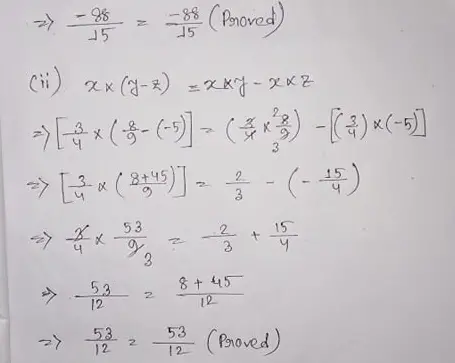 ⇒ -88/15 = -88/15 (Proved)
(ii) x × (y-z) = x×y - x×z
⇒ [3/4 × (8/9 - (-5)] = (3/4 × 8/9) - [(3/4) × (-5)]
⇒ [3/4 × (8+45/9)] = 2/3 - (-15/4)
⇒ 3/4 × 53/9 3 = 2/3 + 15/4
⇒ 53/12 = 8+45/12
⇒ 53/12 = 53/12 (Proved)